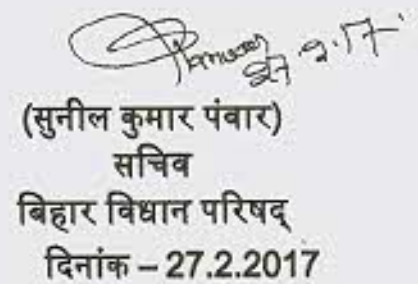 27.2.17
(सुनील कुमार पंवार)
सचिव
बिहार विधान परिषद्
दिनांक – 27.2.2017